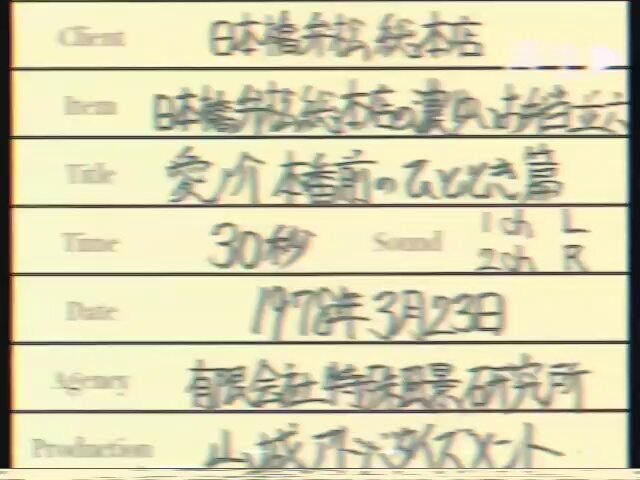 Client 日本橋弁松総本店
Item 日本橋弁松総本店の濃ゆいお弁当
Title 前のひととき篇
Time 30秒 Sound 1ch L
2ch R
Date 1978年3月23日
Agency 有限会社 特殊風景研究所
Production 山城アドバタイズメント